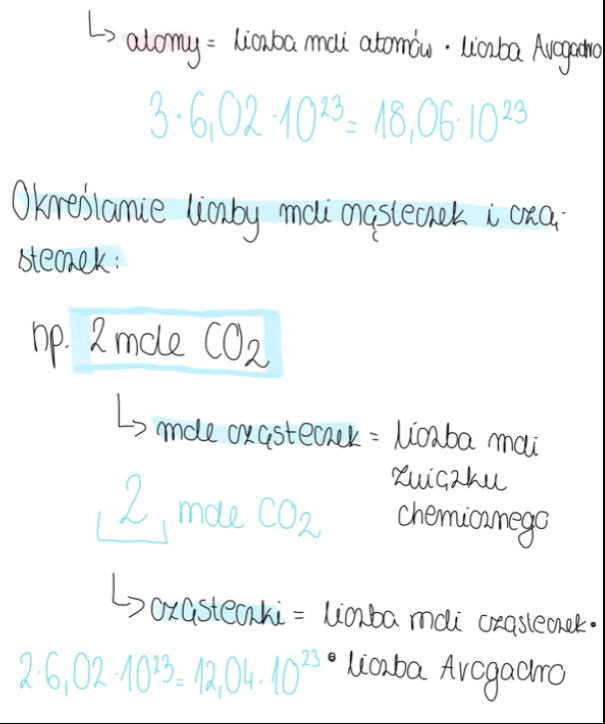 ↳ atomy = liczba moli atomów · liczba Avogadro
3·6,02·10²³= 18,06·10²³
Określanie liczby moli cząsteczek i czą-
steczek:
np. 2 mole CO₂
↳ mole cząsteczek = liczba moli
związku
2 mole CO₂ chemicznego
↳ cząsteczki = liczba moli cząsteczek·
2·6,02·10²³= 12,04·10²³ · liczba Avogadro